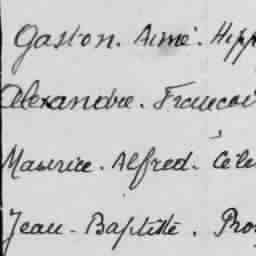 Gaston. Aimé. Hipp
Alexandre. Francoi
Maurice. Alfred. Céle
Jean-Baptiste. Pros